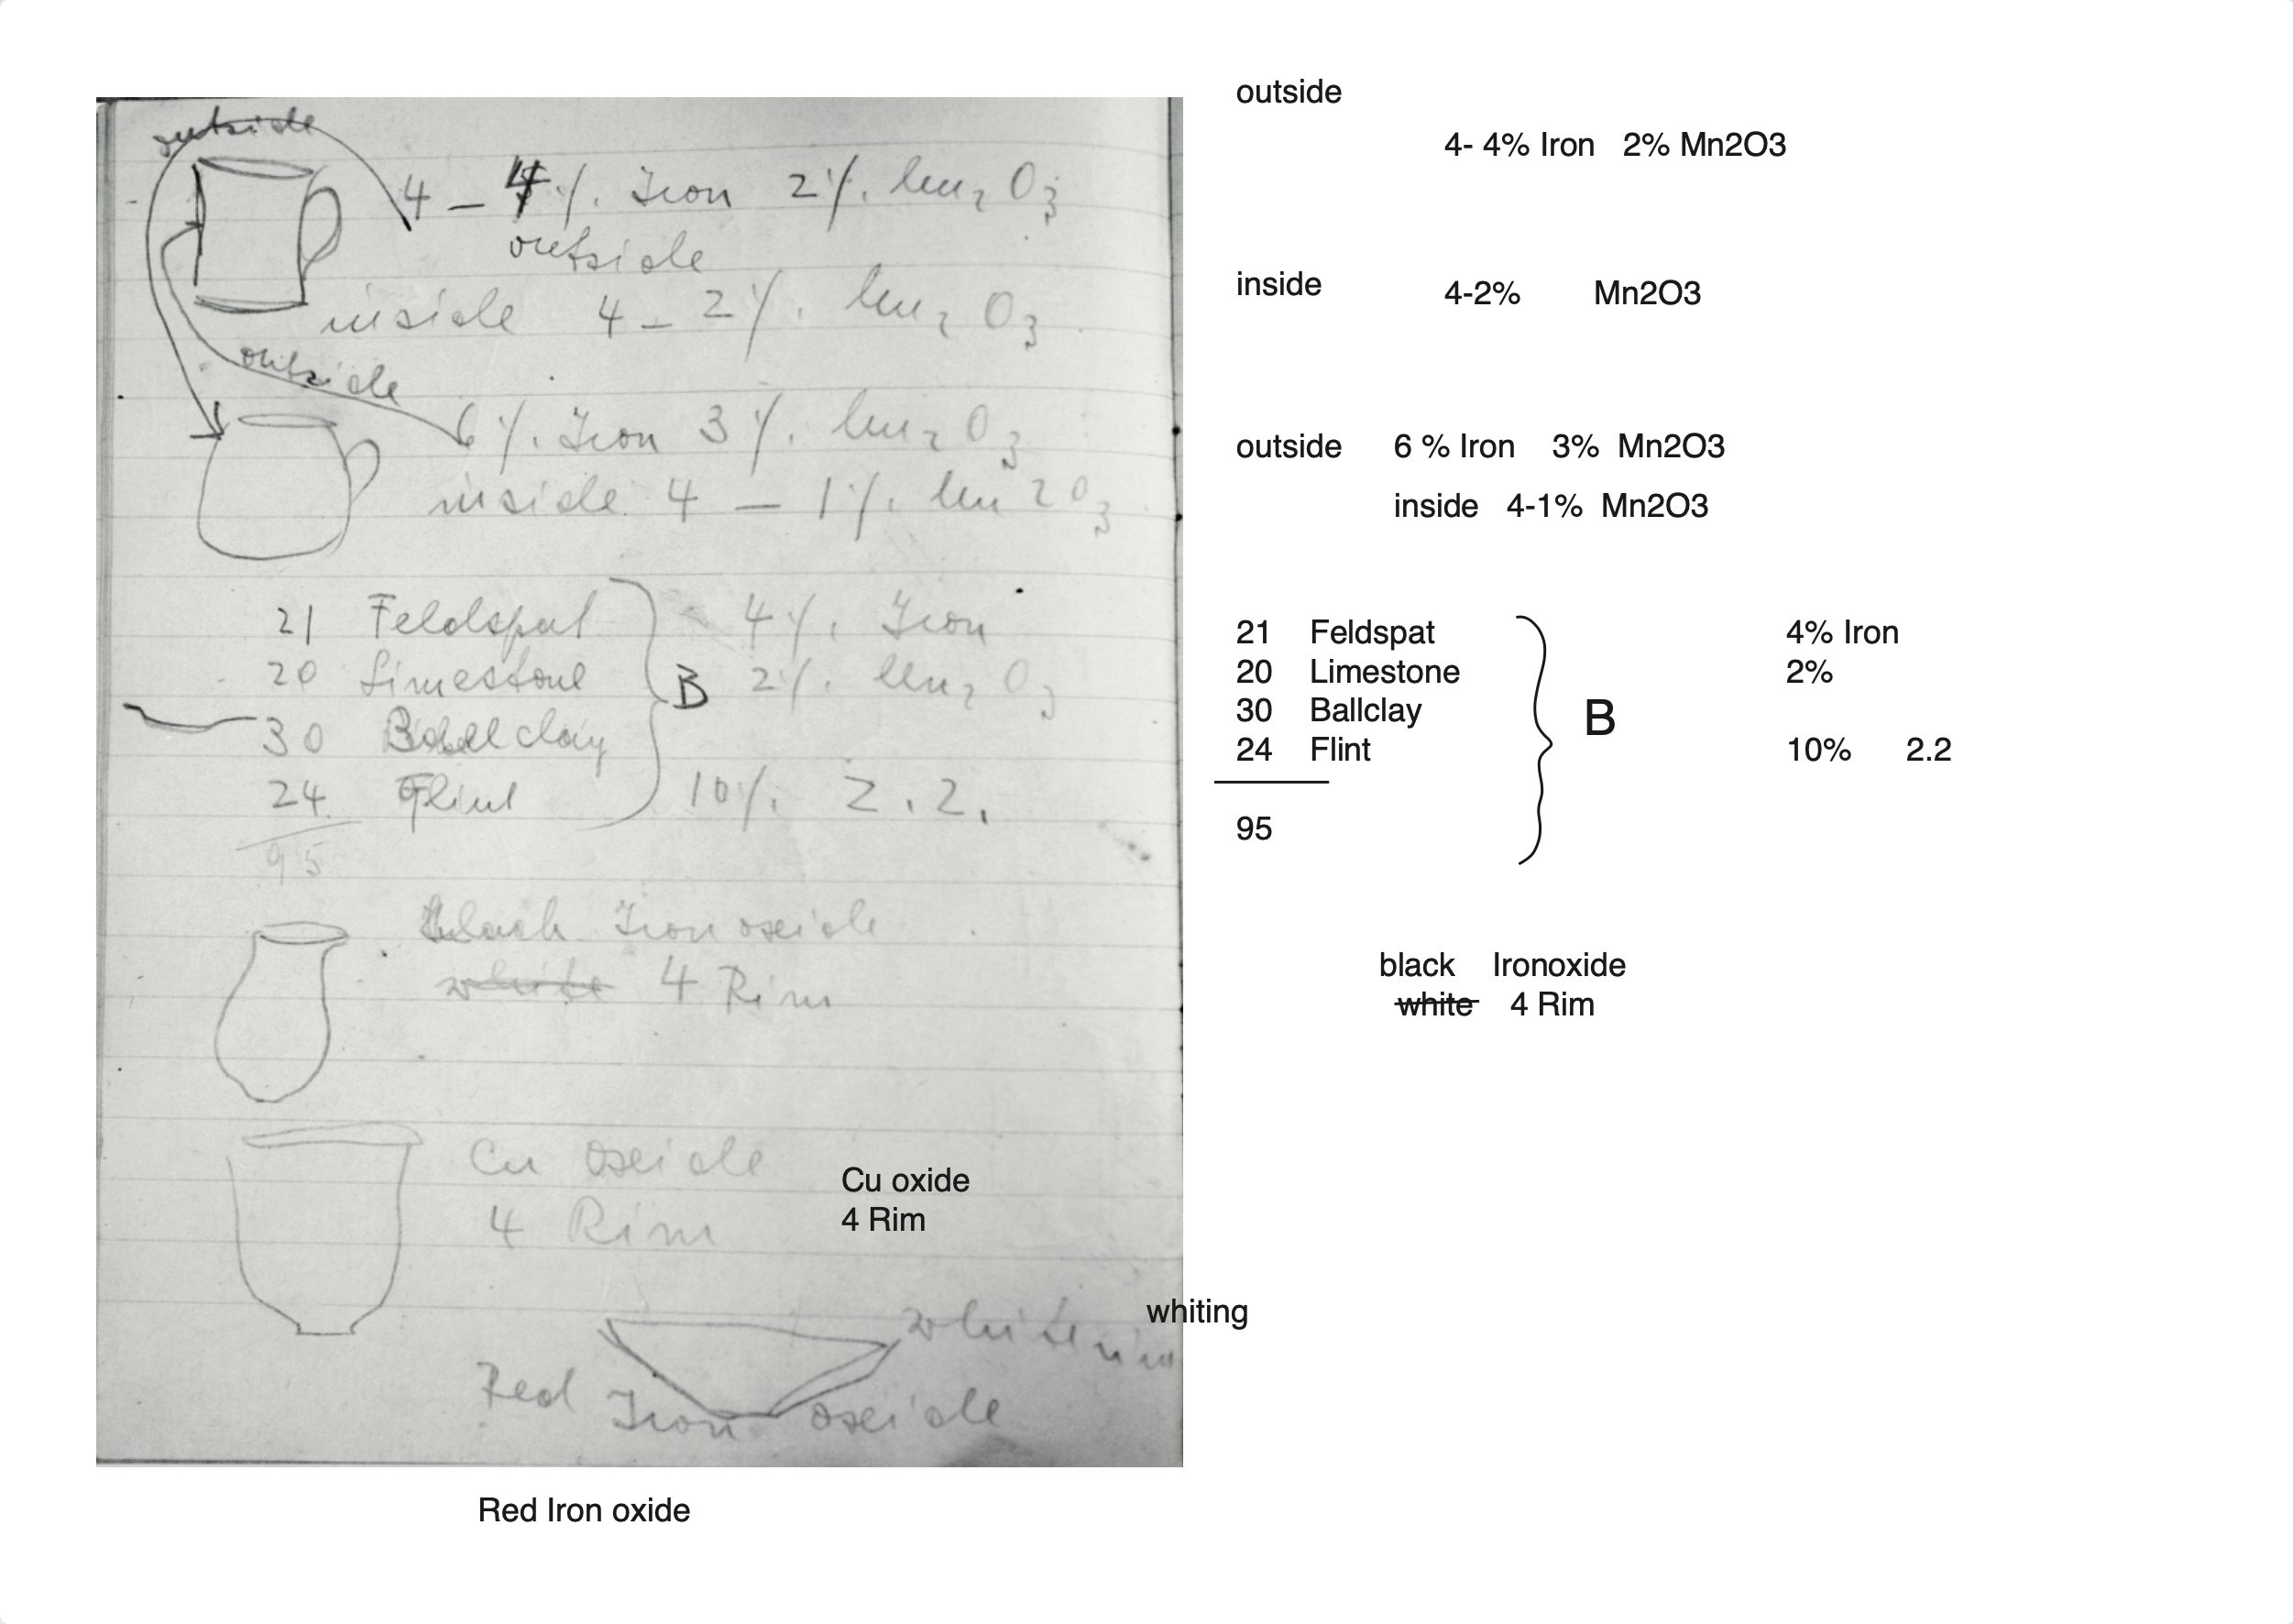 outside
4 – 4%. Iron 2%. Mn2O3
outside
inside 4 – 2%. Mn2O3
outside
6%. Iron 3%. Mn2O3
inside 4 – 1%. Mn2O3
21 Feldspat 4%. Iron
20 Limestone B 2%. Mn2O3
30 Ballclay
24 Flint 10%. Z.2.
95
black Iron oxide
white 4 Rim
Cu oxide
4 Rim
Red Iron oxide
outside
4- 4% Iron 2% Mn2O3
inside 4-2% Mn2O3
outside 6 % Iron 3% Mn2O3
inside 4-1% Mn2O3
21 Feldspat 4% Iron
20 Limestone 2%
30 Ballclay B
24 Flint 10% 2.2
95
black Ironoxide
white 4 Rim
Cu oxide
4 Rim
whiting
Red Iron oxide